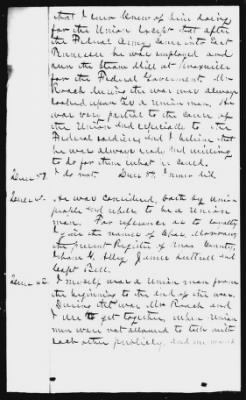 that I ever knew of him doing
for the Union except that after
the Federal Army came into East
Tennessee he was employed and
run the Steam Mill at Knoxville
for the Federal Government. Mr
Roach during the war was always
looked upon as a Union man. He
was very partial to the cause of
the Union and especially to the
Federal soldiers and I believe that
he was always ready and willing
to do for them what he could.
I do not. I never did
He was considered, both by Union
people and others to be a Union
man. For reference as to loyalty
I give the names of
the present Register of Knox County,
James
Capt Bell.
I myself was a Union man from
the beginning to the end of the war.
During the war Mr Roach and
I use to get together, when Union
men were not allowed to talk with
each other publicly, and we would